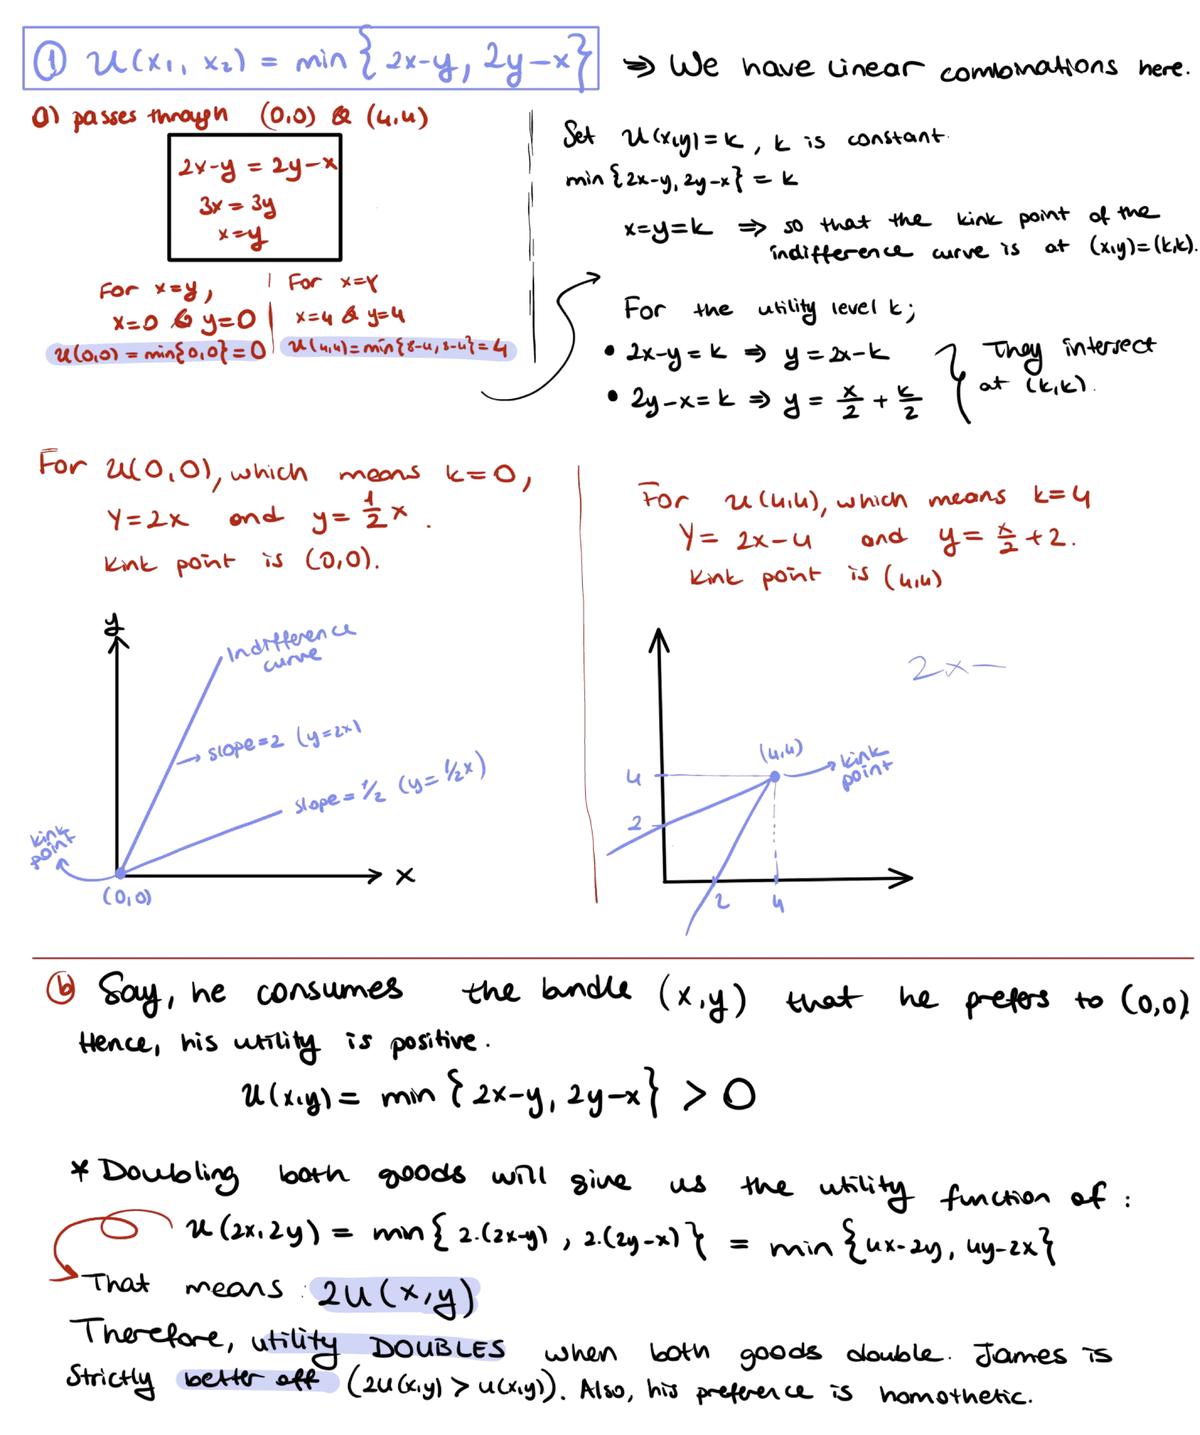 ① U(x₁, x₂) = min{2x-y, 2y-x} ⇒ We have linear combinations here.
a) passes through (0,0) & (4,4)
2x-y = 2y-x
3x = 3y
x=y
For x=y,
x=0 & y=0
U(0,0) = min{0,0} = 0
For x=y
x=4 & y=4
U(4,4) = min{8-4, 8-4} = 4
Set U(x,y) = k, k is constant.
min{2x-y, 2y-x} = k
x=y=k ⇒ so that the kink point of the
indifference curve is at (x,y)=(k,k).
For the utility level k;
• 2x-y=k ⇒ y=2x-k
• 2y-x=k ⇒ y = x/2 + k/2
They intersect
at (k,k).
For U(0,0), which means k=0,
Y=2x and y=1/2 x.
Kink point is (0,0).
For U(4,4), which means k=4
Y= 2x-4 and y= x/2 +2.
Kink point is (4,4)
y
Indifference
curve
→ slope=2 (y=2x)
slope=1/2 (y=1/2x)
kink
point
(0,0)
x
2x-
(4,4)
→ kink
point
4
2
2
4
ⓑ Say, he consumes the bundle (x,y) that he prefers to (0,0)
Hence, his utility is positive.
U(x,y) = min{2x-y, 2y-x} > 0
* Doubling both goods will give us the utility function of:
U(2x,2y) = min{2.(2x-y), 2.(2y-x)} = min{4x-2y, 4y-2x}
That means: 2U(x,y)
Therefore, utility DOUBLES when both goods double. James is
Strictly better off (2U(x,y) > U(x,y)). Also, his preference is homothetic.